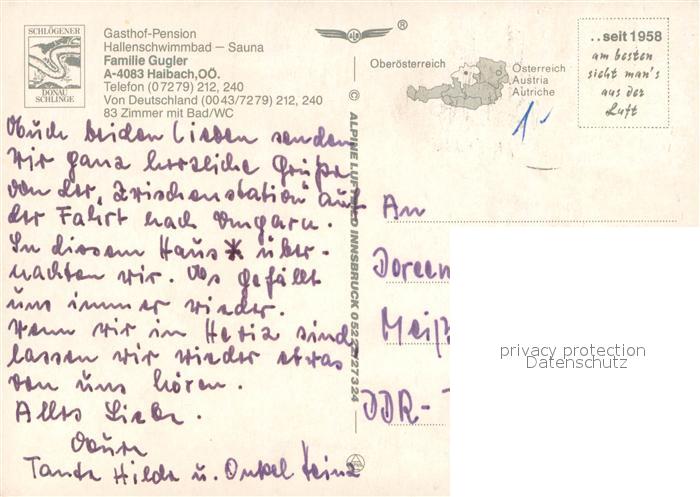 SCHLÖGENER
DONAU
SCHLINGE
Gasthof-Pension
Hallenschwimmbad – Sauna
Familie Gugler
A-4083 Haibach,OÖ.
Telefon (07279) 212, 240
Von Deutschland (0043/7279) 212, 240
83 Zimmer mit Bad/WC
®
Oberösterreich
Österreich
Austria
Autriche
..seit 1958
am besten
sieht man's
aus der
Luft
Euch beiden Lieben senden
wir ganz herzliche Grüße
von der „Zwischenstation" auf
der Fahrt nach Ungarn.
In diesem Haus * über-
nachten wir. Es gefällt
uns immer wieder.
Wenn wir in sind
lassen wir wieder etwas
von uns hören.
Alles Liebe.
Eure
Tante Hilde u. Onkel Heinz
© ALPINE LUFTBILD INNSBRUCK 05222/27324
An
Doreen
Meiß
DDR-
privacy protection
Datenschutz